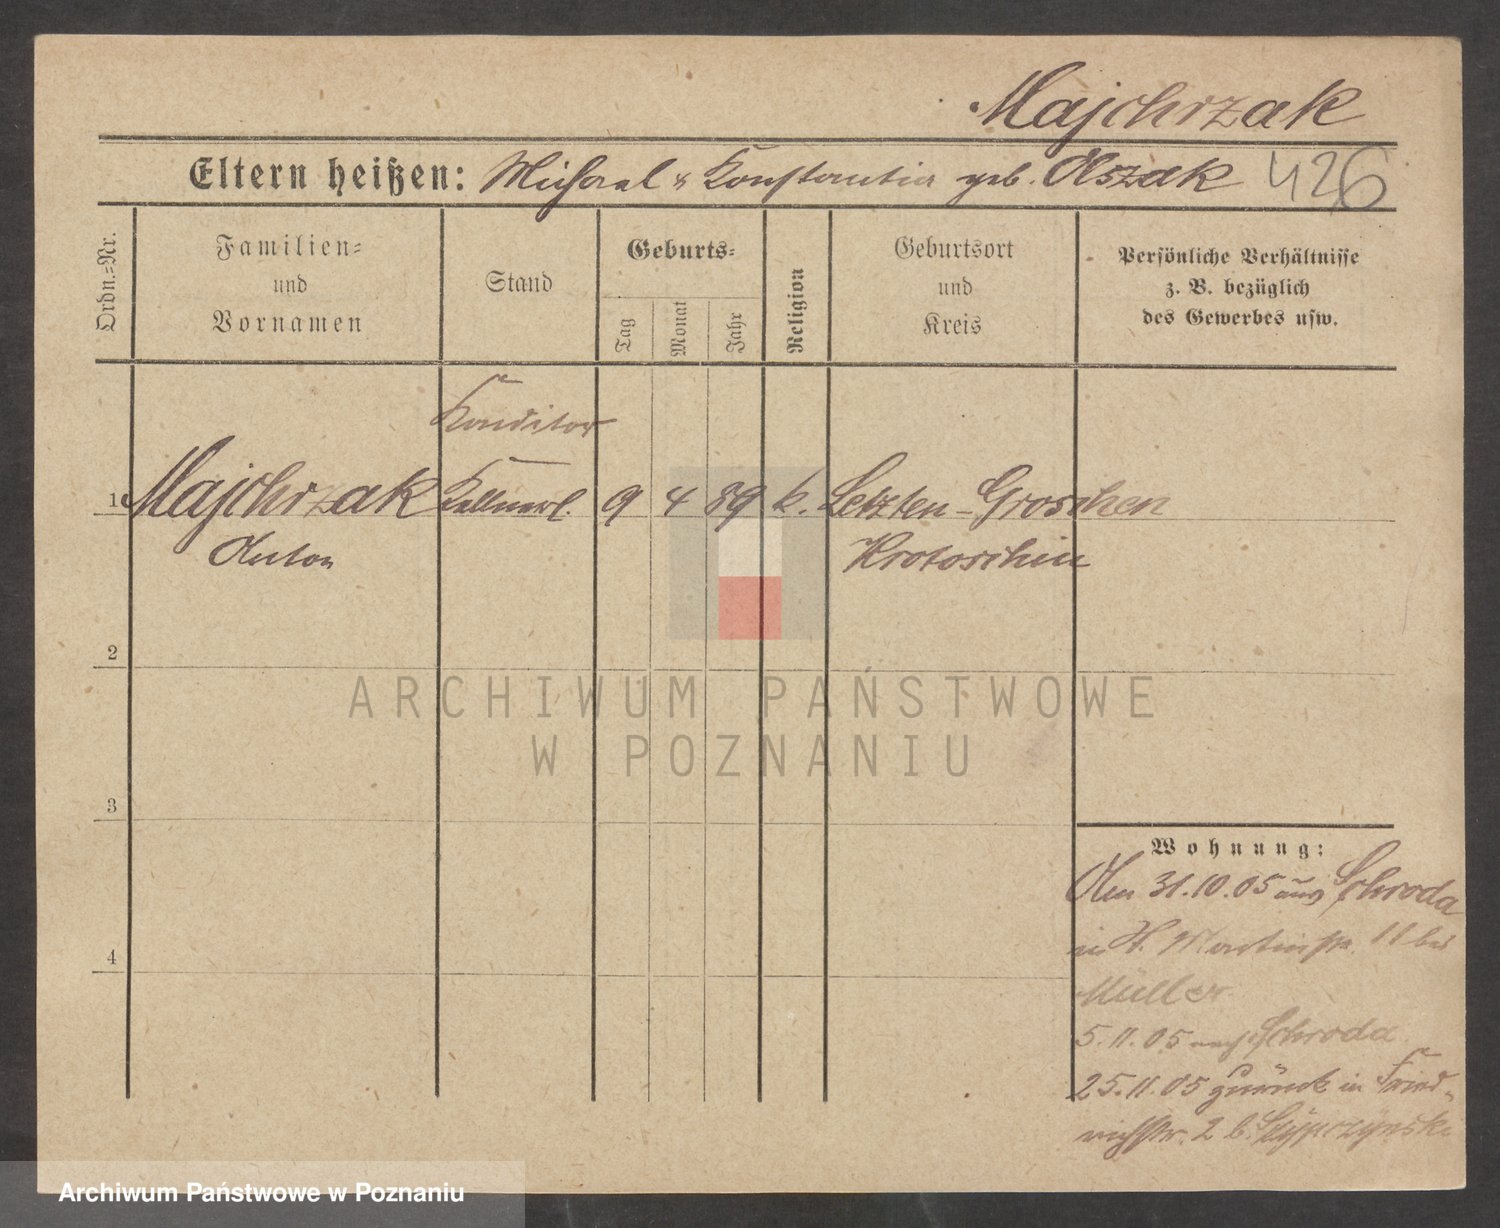 Majchrzak
Eltern heißen: Michael & Konstantia geb. Olszak 426
Ordn.=Nr.
Familien=
und
Vornamen
Stand
Geburts=
Tag
Monat
Jahr
Religion
Geburtsort
und
Kreis
Persönliche Verhältnisse
z. B. bezüglich
des Gewerbes usw.
Konditor
1 Majchrzak Kellnerl. 9 4 89 k. Letzten-Groschen
Anton Krotoschin
2
ARCHIWUM PAŃSTWOWE
W POZNANIU
3
Wohnung:
Am 31.10.05 aus Schroda
in H. Martinstr. 11 bei
4
Müller
5.11.05 nach Schroda
25.11.05 zurück in Fried-
richstr. 2 b.
Archiwum Państwowe w Poznaniu